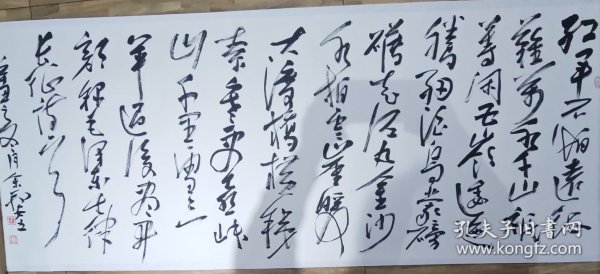 红军不怕远征
难万水千山只
等闲五岭逶迤
腾细浪乌蒙磅
礴走泥丸金沙
水拍云崖暖
大渡桥横铁
索寒更喜岷
山千里雪三
军过后尽开
颜 毛泽东七律
长征诗一首
孔夫子旧书网
www.kongfz.com